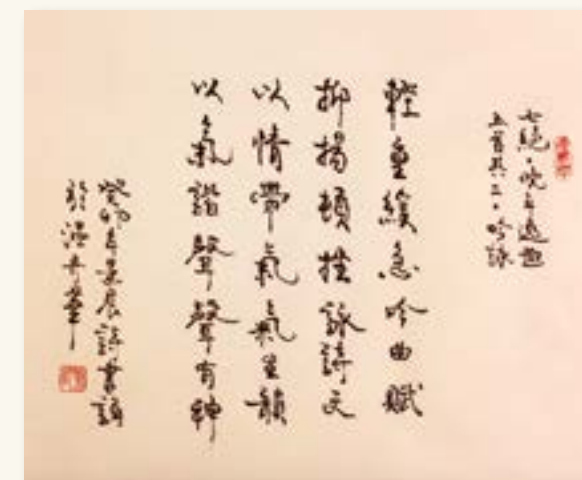 七絕·晚年逸趣
五首其二·吟詠
輕重緩急吟曲賦
抑揚頓挫詠詩文
以情帶氣氣生韻
以氣諧聲聲有神
癸卯年景晨詩書頌
於溫哥華